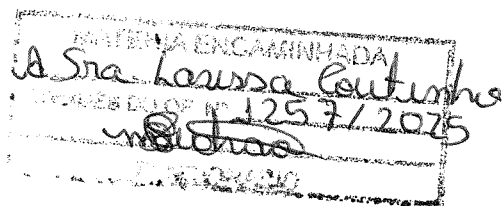 MATÉRIA ENCAMINHADA
A Sra. Larissa Coutinho
ATRAVÉS DO OF. Nº 1257/2025